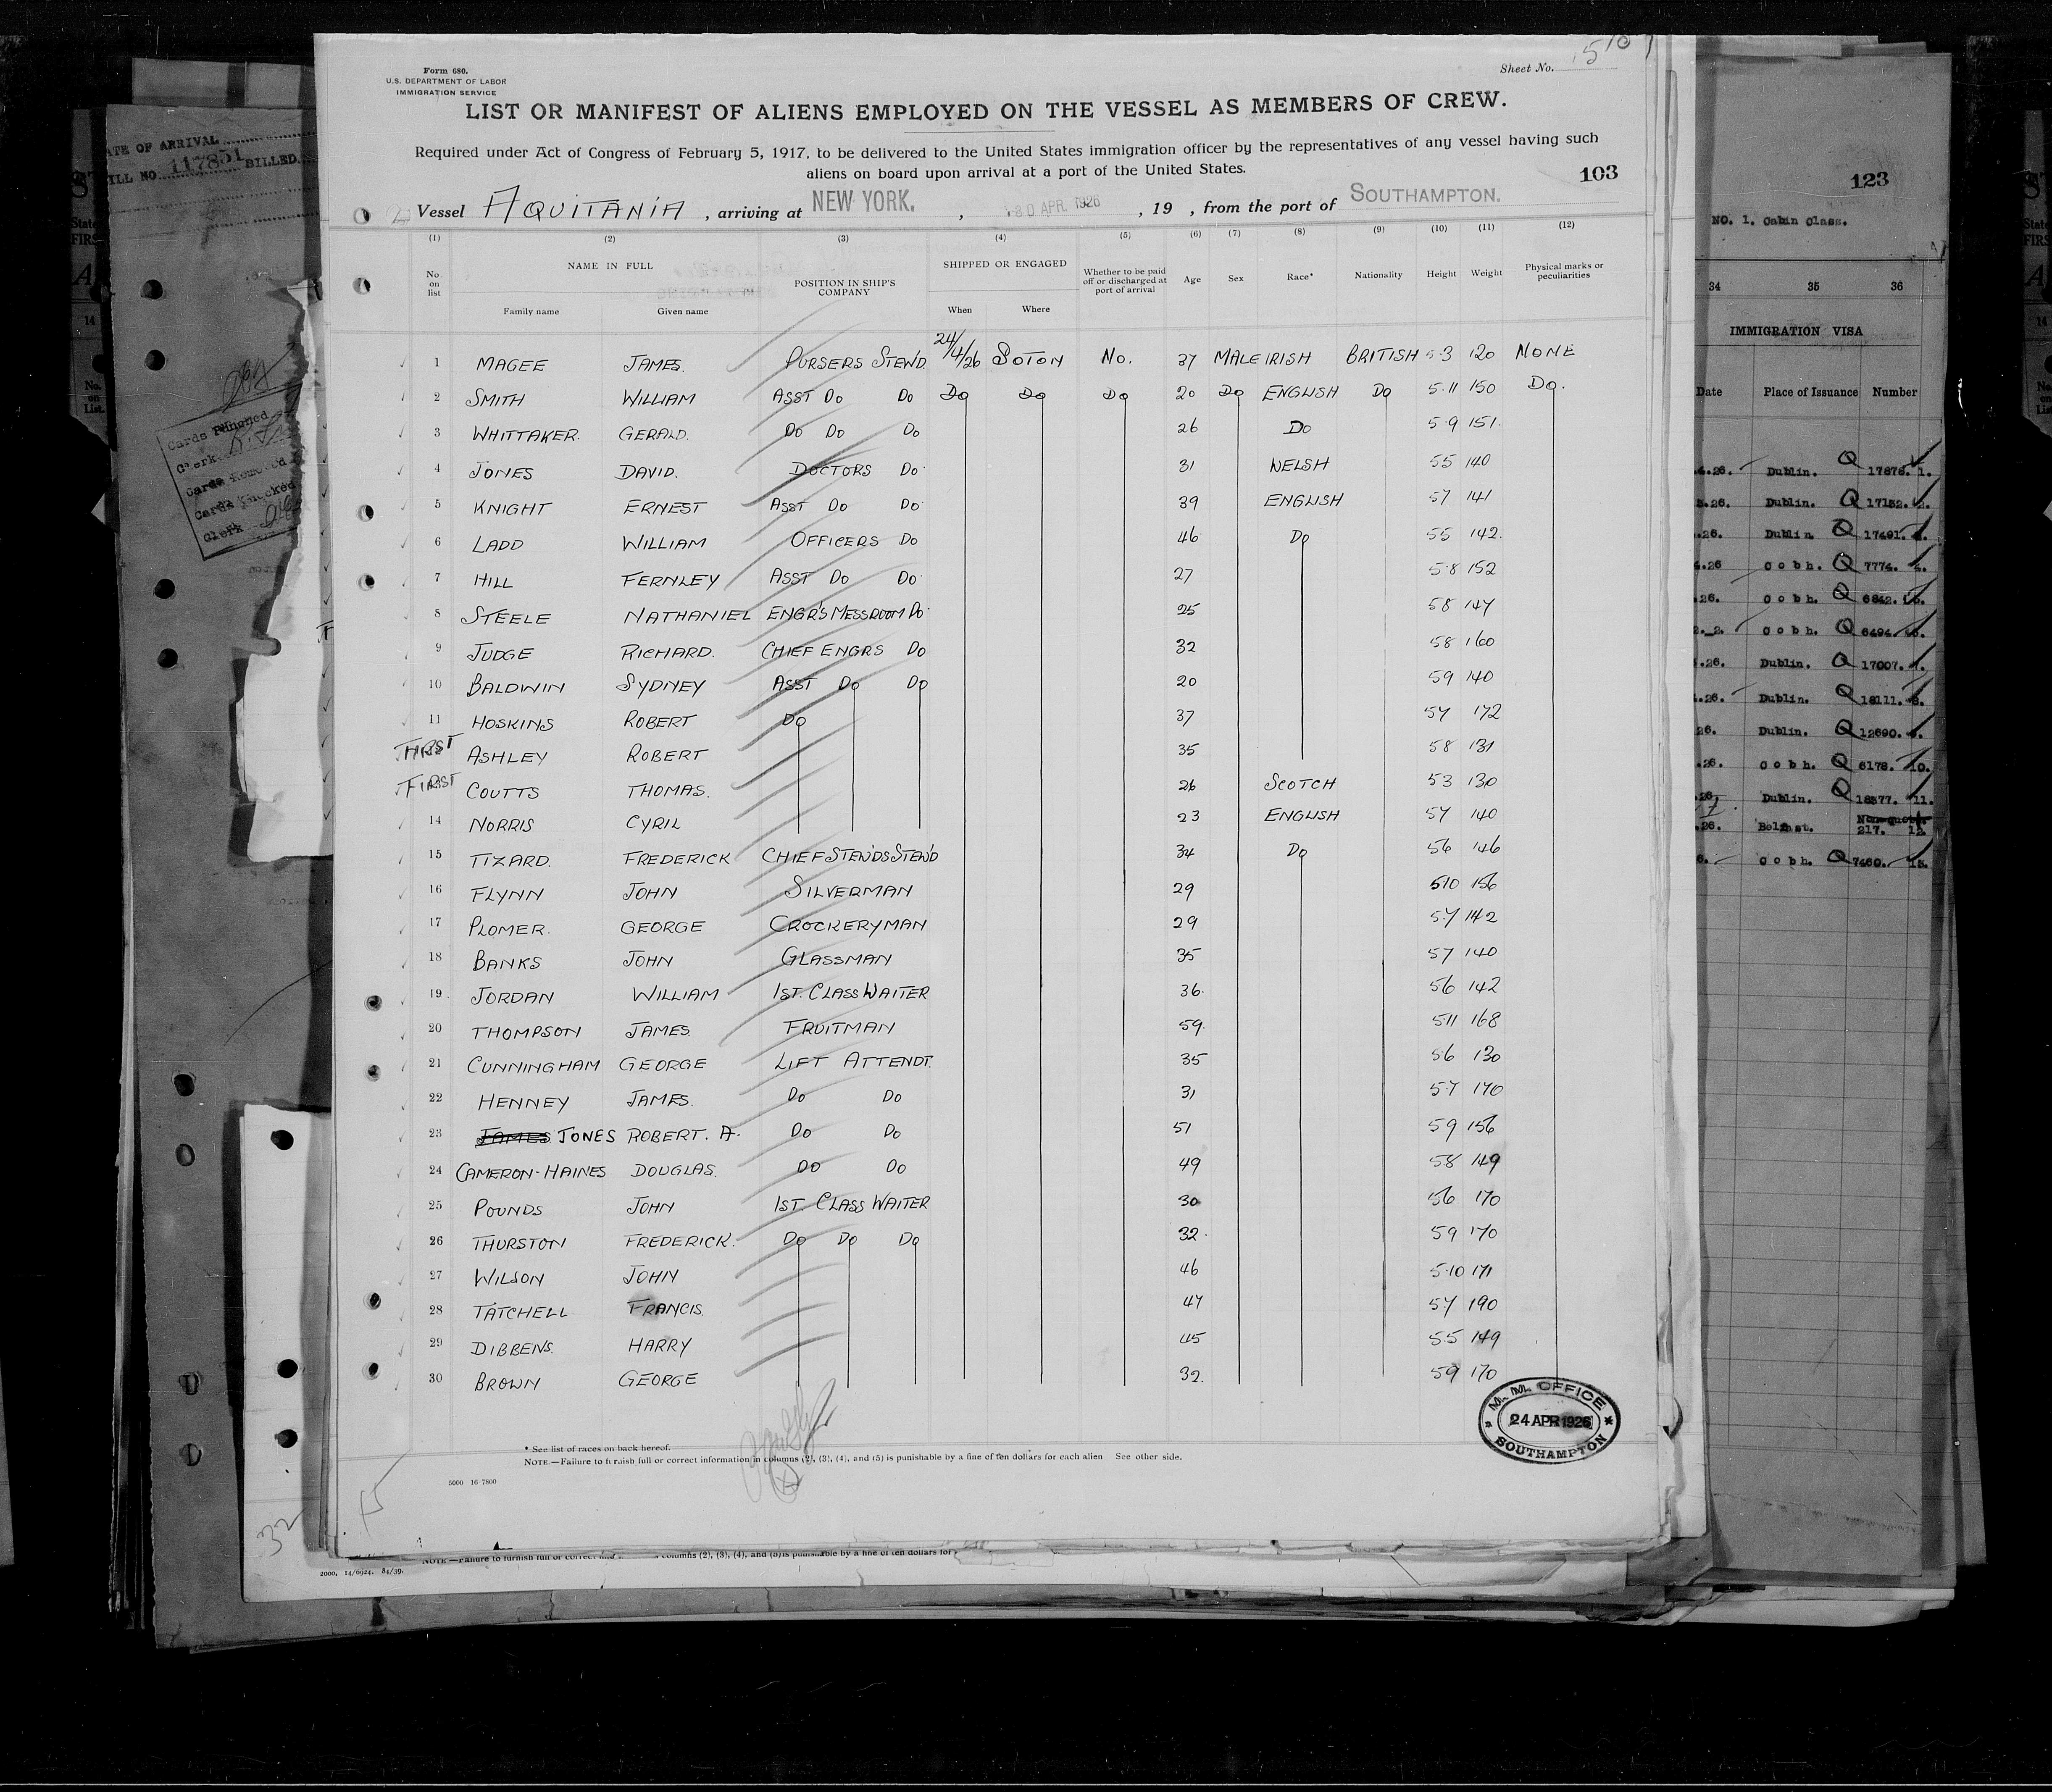 Form 680.
U.S. DEPARTMENT OF LABOR
IMMIGRATION SERVICE
Sheet No.
LIST OR MANIFEST OF ALIENS EMPLOYED ON THE VESSEL AS MEMBERS OF CREW.
Required under Act of Congress of February 5, 1917, to be delivered to the United States immigration officer by the representatives of any vessel having such
aliens on board upon arrival at a port of the United States.
103
Vessel AQUITANIA , arriving at NEW YORK. , APR. 1926 , 19 , from the port of SOUTHAMPTON.
(1) (2) (3) (4) (5) (6) (7) (8) (9) (10) (11) (12)
No on list NAME IN FULL POSITION IN SHIP'S COMPANY SHIPPED OR ENGAGED Whether to be paid off or discharged at port of arrival Age Sex Race* Nationality Height Weight Physical marks or peculiarities
Family name Given name When Where
1 MAGEE JAMES. PURSERS STEWD. 24/4/26 SOTON No. 37 MALE IRISH BRITISH 5·3 120 NONE
2 SMITH WILLIAM ASST DO DO DO DO DO 20 DO ENGLISH DO 5·11 150 DO.
3 WHITTAKER. GERALD. DO DO DO 26 DO 5·9 151.
4 JONES DAVID. DOCTORS DO. 31 WELSH 55 140
5 KNIGHT ERNEST ASST DO DO 39 ENGLISH 57 141
6 LADD WILLIAM OFFICERS DO 46 DO 55 142.
7 HILL FERNLEY ASST DO DO 27 5·8 152
8 STEELE NATHANIEL ENGR'S MESSROOM DO 25 58 147
9 JUDGE RICHARD. CHIEF ENGRS DO 32 58 160
10 BALDWIN SYDNEY ASST DO DO 20 59 140
11 HOSKINS ROBERT DO 37 57 172
FIRST ASHLEY ROBERT 35 58 131
FIRST COUTTS THOMAS. 26 SCOTCH 53 130
14 NORRIS CYRIL 23 ENGLISH 57 140
15 TIZARD. FREDERICK CHIEF STEWDS STEWD 34 DO 56 146
16 FLYNN JOHN SILVERMAN 29 510 156
17 PLOMER. GEORGE CROCKERYMAN 29 5·7 142
18 BANKS JOHN GLASSMAN 35 57 140
19 JORDAN WILLIAM 1ST. CLASS WAITER 36. 56 142
20 THOMPSON JAMES. FRUITMAN 59. 511 168
21 CUNNINGHAM GEORGE LIFT ATTENDT. 35 56 130
22 HENNEY JAMES. DO DO 31 5·7 170
23 JAMES JONES ROBERT. A. DO DO 51 59 156
24 CAMERON-HAINES DOUGLAS. DO DO 49 58 149
25 POUNDS JOHN 1ST. CLASS WAITER 30 56 170
26 THURSTON FREDERICK. DO DO DO 32. 59 170
27 WILSON JOHN 46 5·10 171
28 TATCHELL FRANCIS. 47 5·7 190
29 DIBBENS. HARRY 45 5·5 149
30 BROWN GEORGE 32. 59 170
M. M. OFFICE
24 APR 1926
SOUTHAMPTON
* See list of races on back hereof.
NOTE.—Failure to furnish full or correct information in columns (2), (3), (4), and (5) is punishable by a fine of ten dollars for each alien See other side.
5000 16-7800
15
32
2000. 14/6924. 84/39.
ATE OF ARRIVAL
ILL NO. 117851 BILLED.
Cards Punched
Clerk
Cards Removed
Cards Checked
Clerk
123
NO. 1. Cabin Class.
34 35 36
IMMIGRATION VISA
Date Place of Issuance Number
.26. Dublin. Q 17876. 1.
.26. Dublin. Q 17152. 2.
.26. Dublin. Q 17491.
.26 Cobh. Q 7774. 4.
.26. Cobh. Q 6842.
Cobh. Q 6494.
.26. Dublin. Q 17007.
.26. Dublin. Q 18111.
26. Dublin. Q 12690.
.26. Cobh. Q 6178. 10.
.26. Dublin. Q 18377. 11.
.26. Belfast. Non-quota. 217. 12.
Cobh. Q 7460. 13.